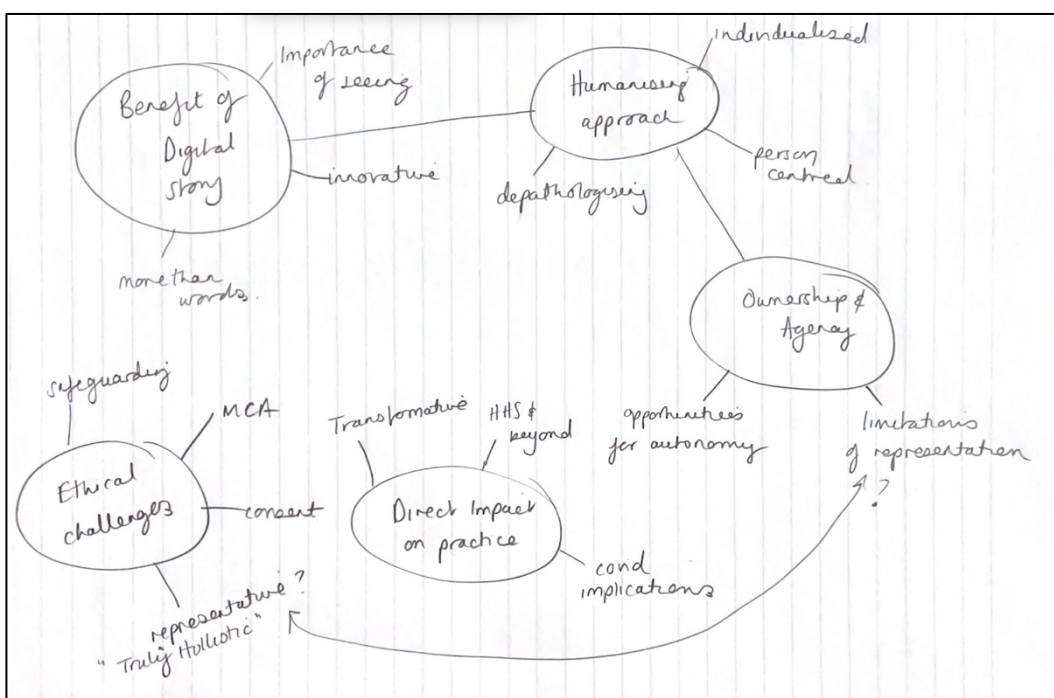 Benefit of
Digital
story
Importance
of seeing
innovative
more than
words.
Humanising
approach
individualised
person
centred
depathologising
Ownership &
Agency
opportunities
for autonomy
limitations
of representation
?
Ethical
challenges
safeguarding
MCA
consent
representative?
"Truly Holistic"
Direct Impact
on practice
Transformative
HHS &
beyond
covid
implications